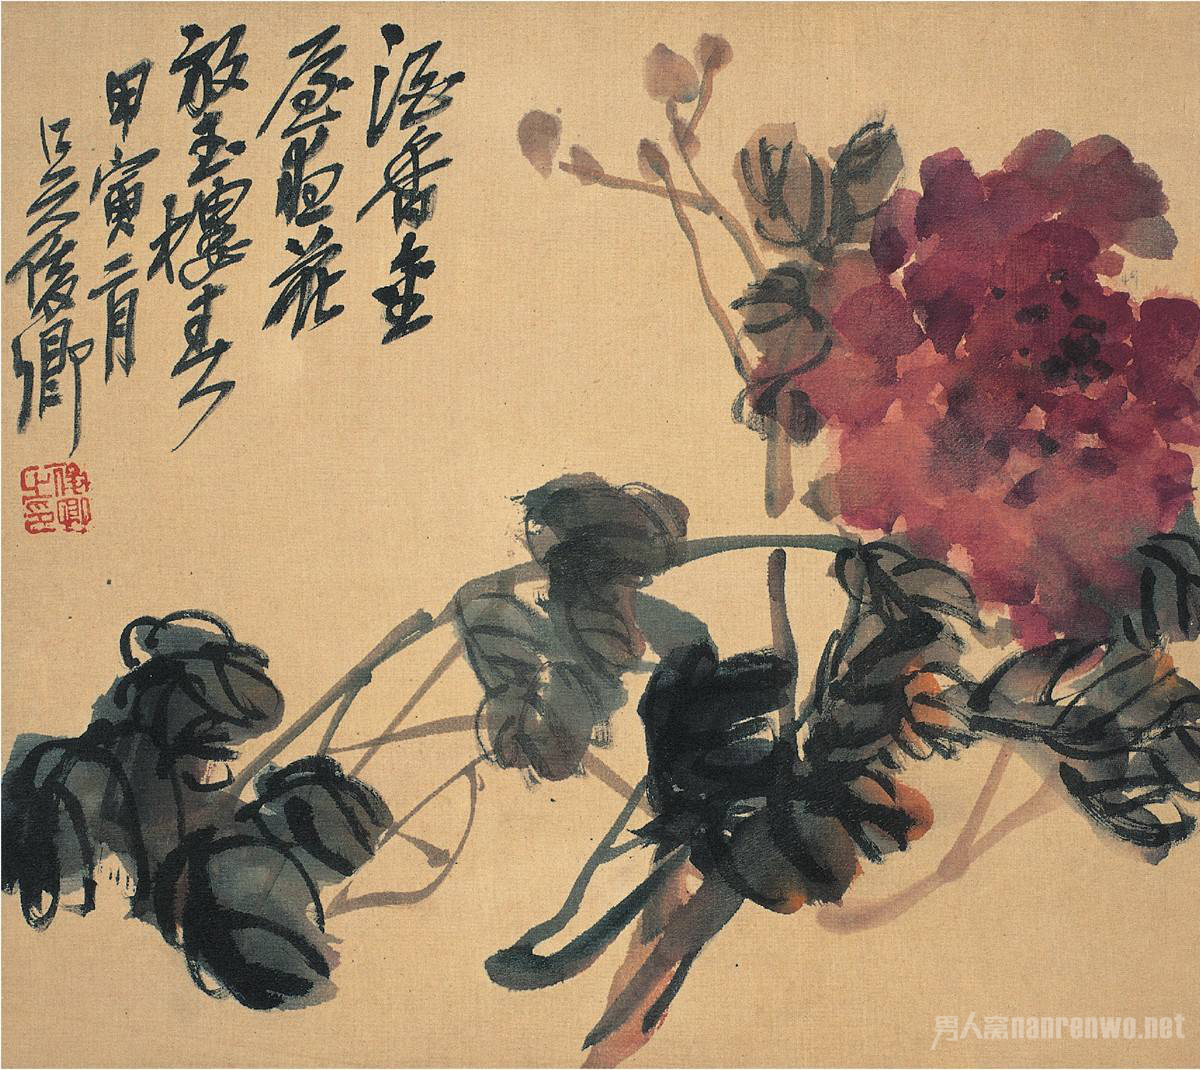 酒香金
屋花
放玉樓春
甲寅二月
吳俊卿
俊卿之印
男人窝nanrenwo.net